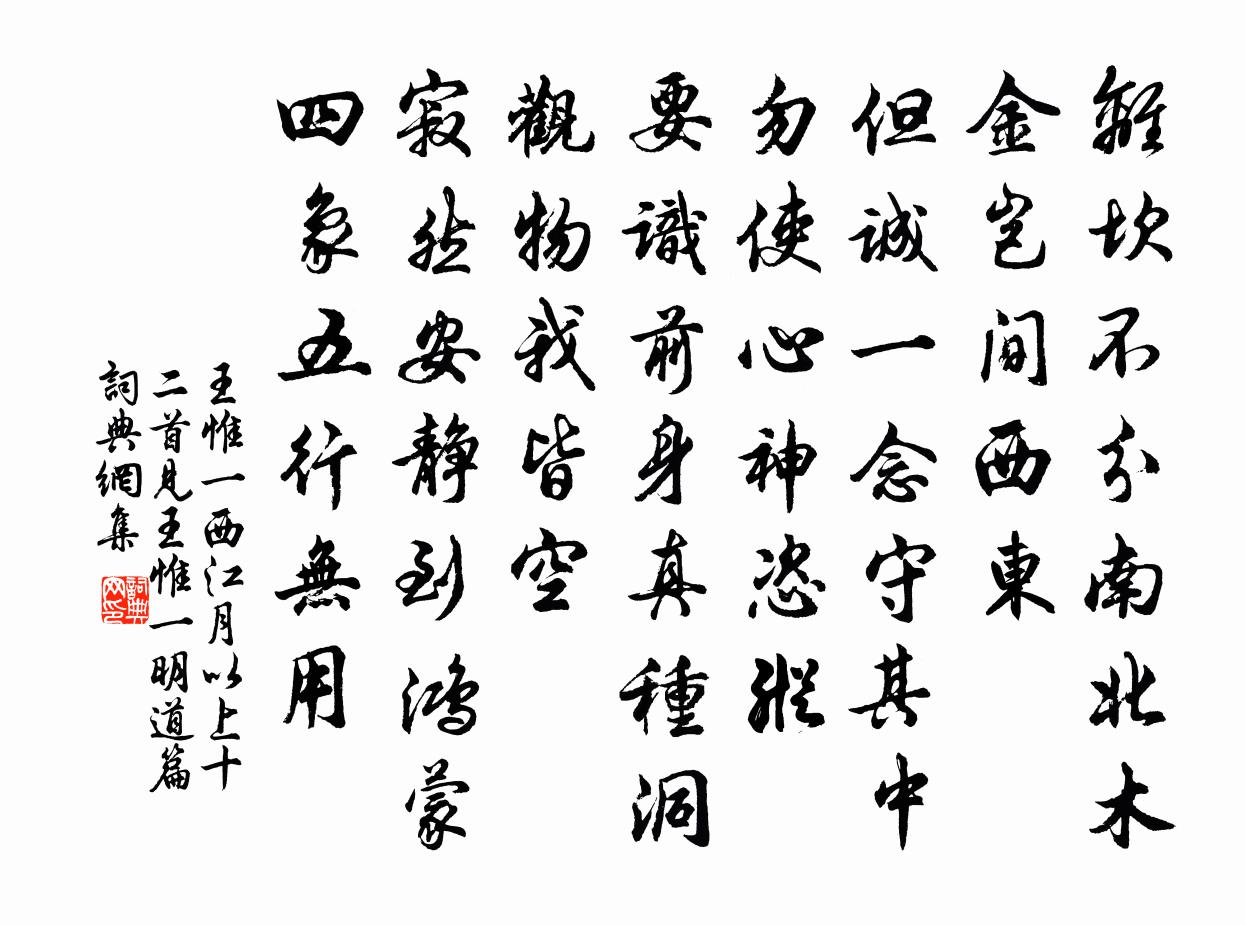 離坎不分南北木
金岂間西東
但誠一念守其中
勿使心神恣縱
要識前身真種洞
觀物我皆空
寂然安靜到鴻蒙
四象五行無用
王惟一西江月以上十
二首見王惟一明道篇
詞典網集